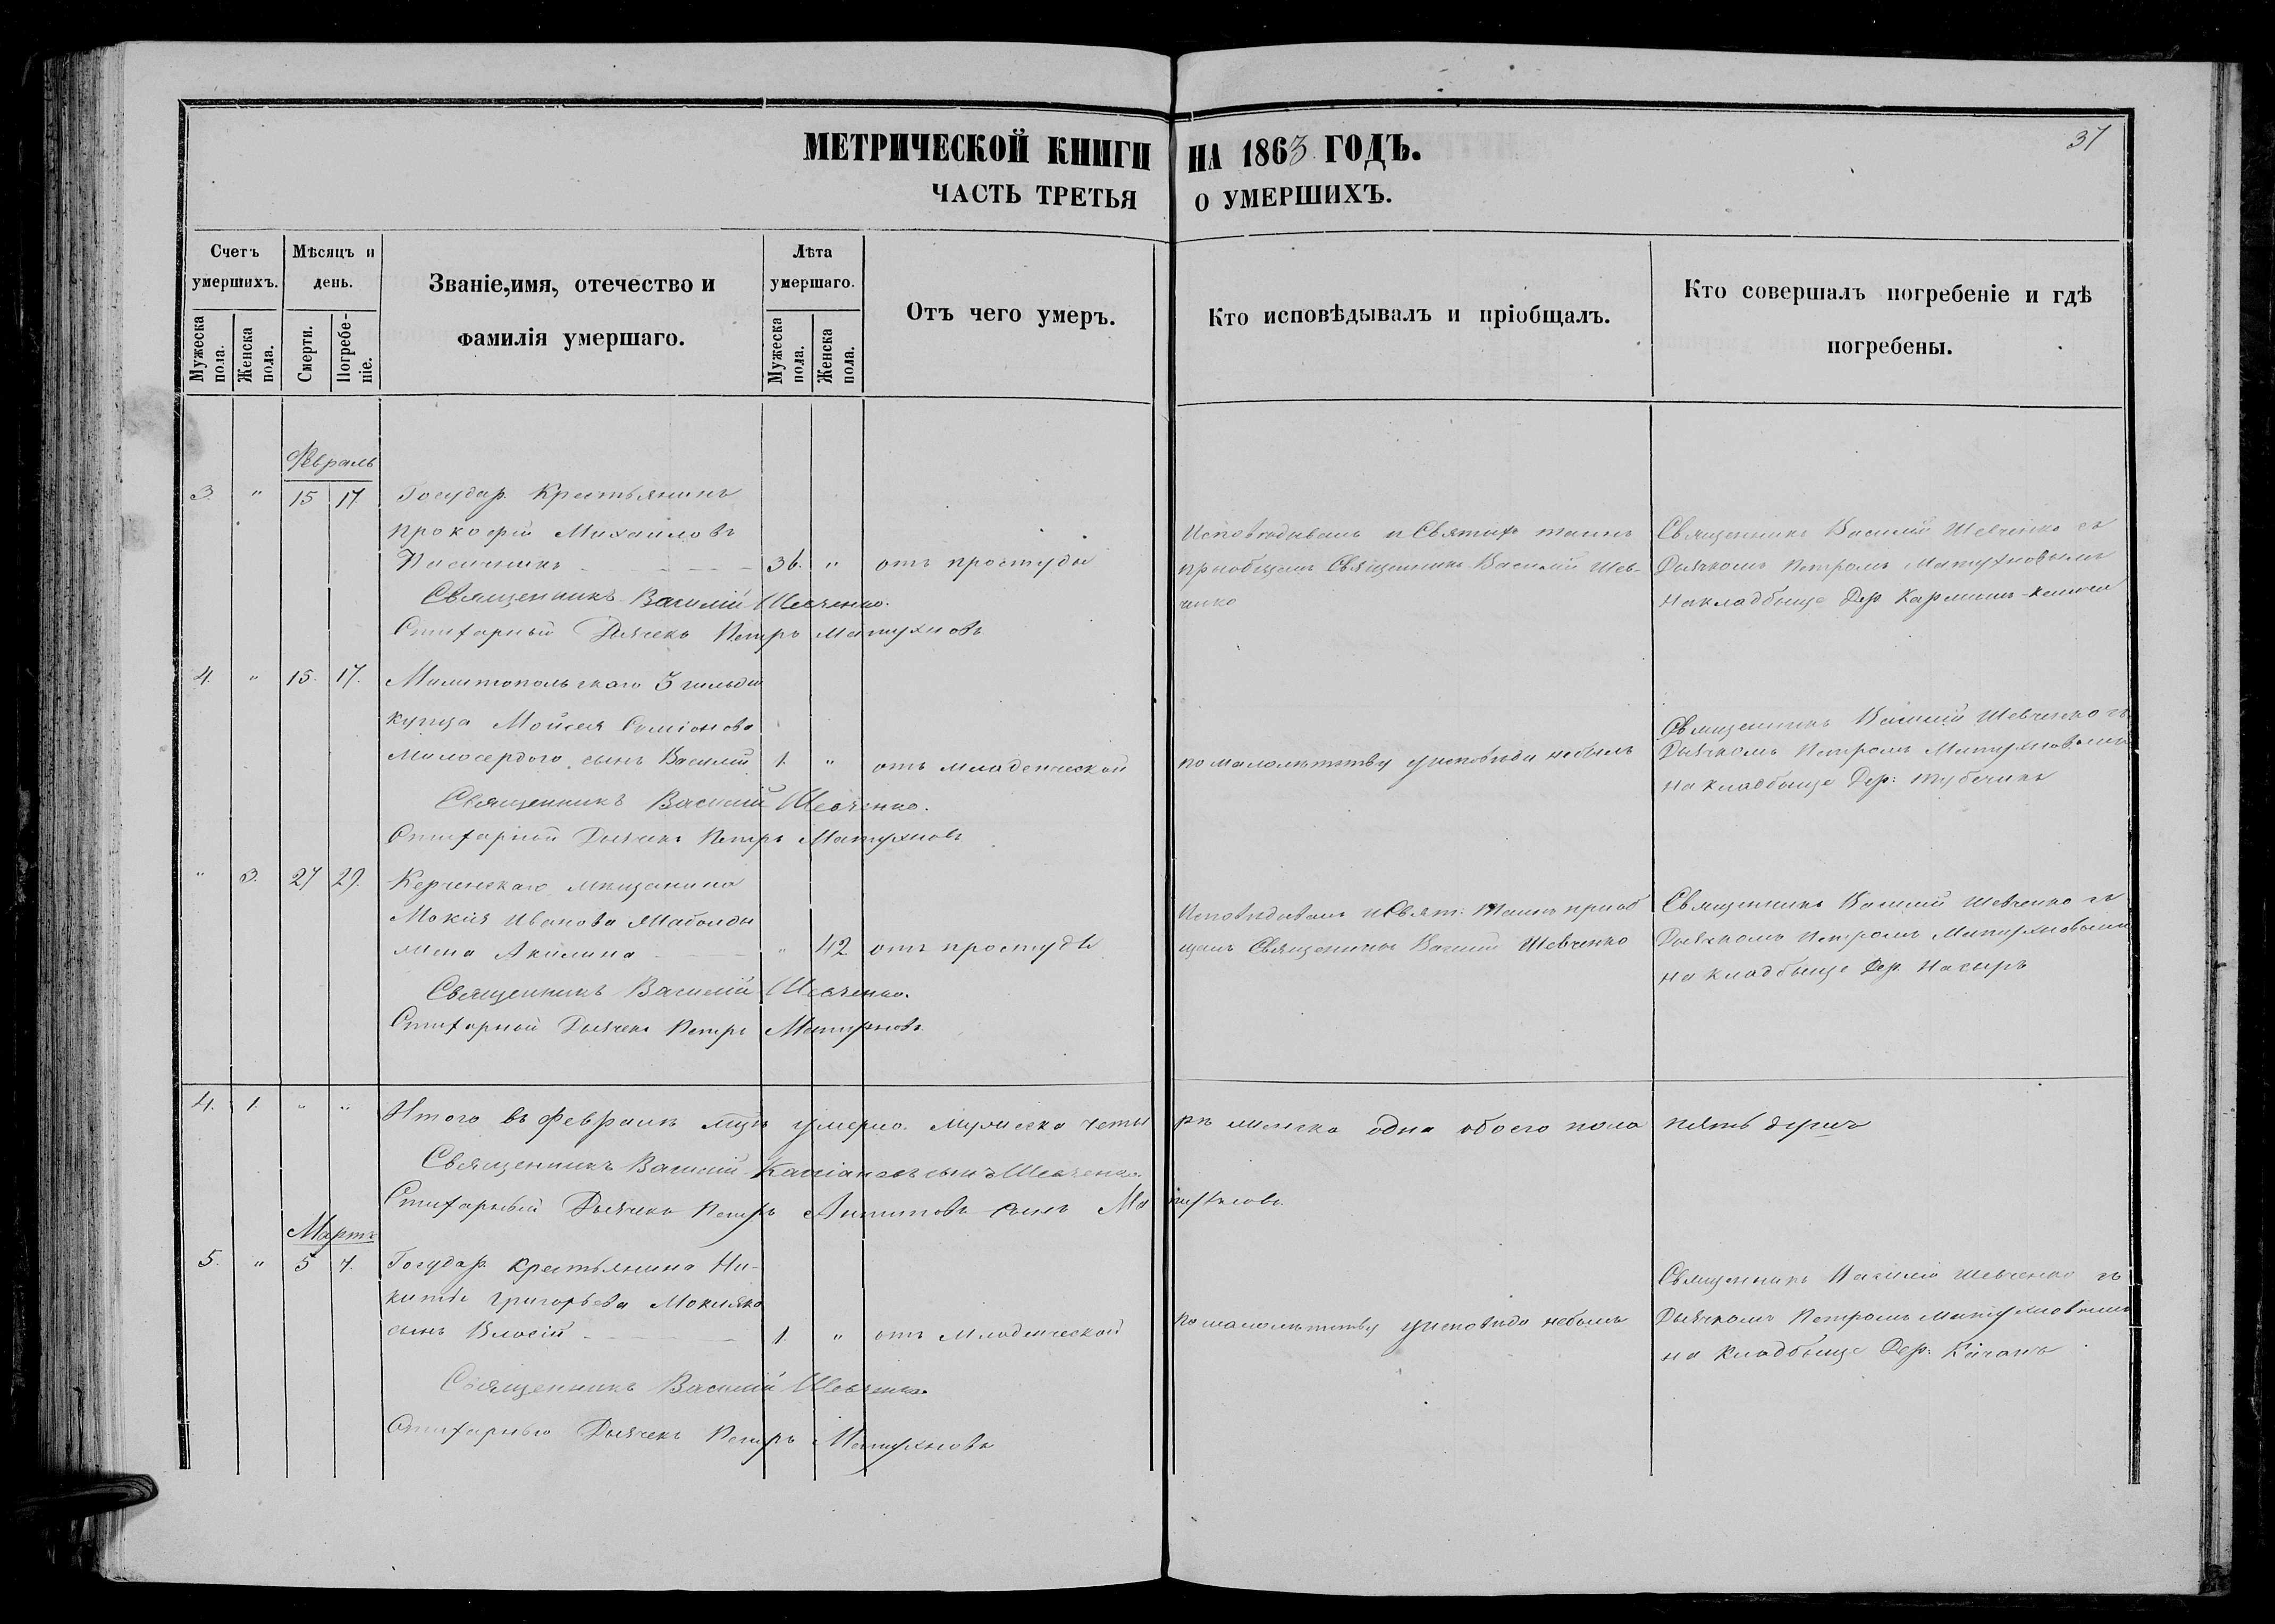 МЕТРИЧЕСКОЙ КНИГИ НА 1863 ГОДЪ.
37
ЧАСТЬ ТРЕТЬЯ О УМЕРШИХЪ.
Счетъ умершихъ.
Мужеска пола.
Женска пола.
Мѣсяцъ и день.
Смерти.
Погребеніе.
Званіе,имя, отечество и фамилія умершаго.
Лѣта умершаго.
Мужеска пола.
Женска пола.
Отъ чего умеръ.
Кто исповѣдывалъ и пріобщалъ.
Кто совершалъ погребеніе и гдѣ погребены.
Февраль
3. " 15 17 Государ. Крестьянинъ
Прокофій Михаиловъ
Пасичникъ 36. " отъ простуды
Исповѣдывалъ и Святыхъ таинъ
приобщалъ Священникъ Василій Шев-
ченко
Священникъ Василій Шевченко съ
Дьячкомъ Петромъ Матухновымъ
на кладбыще Дер.
Священникъ Василій Шевченко.
Стихарный Дьячекъ Петръ Матухновъ
4. " 15. 17. Мелитопольскаго 3 гильдіи
купца Мойсея Симіонова
Милосердого сынъ Василий 1. " отъ младенческой
по малолѣтству у исповѣди небылъ
Священникъ Василій Шевченко съ
Дьячкомъ Петромъ Матухновымъ
на кладбыще Дер:
Священникъ Василій Шевченко.
Стихарный Дьячекъ Петръ Матухновъ
" 3. 27 29. Керченскаго мѣщанина
Мокія Иванова
жена Акилина " 42 отъ простуды
Исповѣдывалъ и Свят: Таинъ приоб
щалъ Священникъ Василий Шевченко
Священникъ Василий Шевченко съ
Дьячкомъ Петромъ Матухновымъ
на кладбыще Дер. Насыръ
Священникъ Василій Шевченко.
Стихарной Дьячекъ Петръ Матухновъ
4. 1. " " Итого въ Февралѣ мцѣ умерло мужеска четы рѣ женска одна обоего пола пять душъ
Священникъ Василій Кассіановъ сынъ Шевченко.
Стихарный Дьячекъ Петръ Антиповъ сынъ Матухновъ
Мартъ
5. " 5 7. Государ. крестьянина Ни-
киты Григорьева
сынъ Власій 1. " отъ Младенческой
по малолѣтству у исповѣди небылъ
Священникъ Василій Шевченко съ
Дьячкомъ Петромъ Матухновымъ
на кладбыще Дер: Качанъ
Священникъ Василій Шевченко.
Стихарный Дьячекъ Петръ Матухновъ